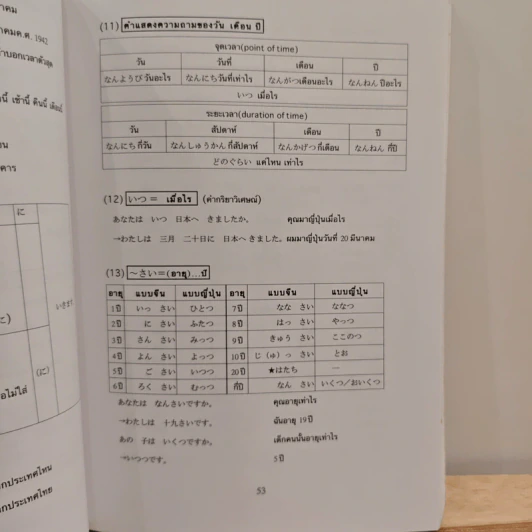 าคม
าคมค.ศ. 1942
(11) คำแสดงความถามของวัน เดือน ปี
จุดเวลา(point of time)
วัน วันที่ เดือน ปี
なんようび วันอะไร なんにち วันที่เท่าไร なんがつ เดือนอะไร なんねん ปีอะไร
いつ เมื่อไร
ระยะเวลา(duration of time)
วัน สัปดาห์ เดือน ปี
なんにち กี่วัน なんしゅうかん กี่สัปดาห์ なんかげつ กี่เดือน なんねん กี่ปี
どのぐらい แค่ไหน เท่าไร
(12) いつ = เมื่อไร (คำกริยาวิเศษณ์)
あなたは いつ 日本へ きましたか。 คุณมาญี่ปุ่นเมื่อไร
→わたしは 三月 二十日に 日本へ きました。 ผมมาญี่ปุ่นวันที่ 20 มีนาคม
(13) ～さい=(อายุ)...ปี
อายุ แบบจีน แบบญี่ปุ่น อายุ แบบจีน แบบญี่ปุ่น
1ปี いっ さい ひとつ 7ปี なな さい ななつ
2ปี に さい ふたつ 8ปี はっ さい やっつ
3ปี さん さい みっつ 9ปี きゅう さい ここのつ
4ปี よん さい よっつ 10ปี じ(ゅ)っ さい とお
5ปี ご さい いつつ 20ปี ★はたち —
6ปี ろく さい むっつ กี่ปี なん さい いくつ/おいくつ
あなたは なんさいですか。 คุณอายุเท่าไร
→わたしは 十九さいです。 ฉันอายุ 19 ปี
あの 子は いくつですか。 เด็กคนนั้นอายุเท่าไร
→いつつです。 5 ปี
53
に
(に)
อไม่ใส่
กประเทศไหน
กประเทศไทย